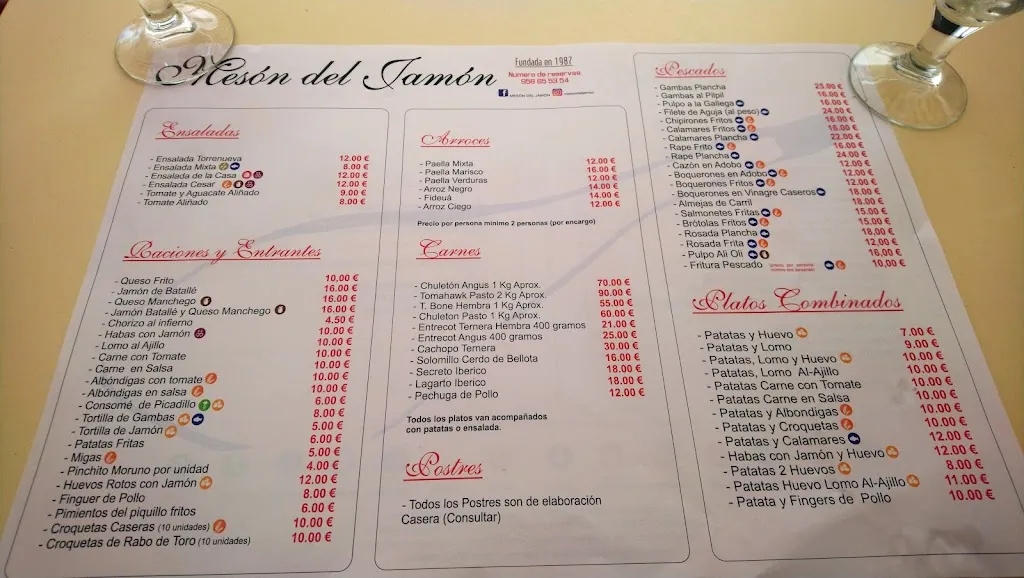 Mesón del Jamón
Fundada en 1987
Numero de reservas
956 65 53 54
MESÓN DEL JAMÓN
Ensaladas
- Ensalada Torrenueva 12.00 €
- Ensalada Mixta 8.00 €
- Ensalada de la Casa 12.00 €
- Ensalada Cesar 12.00 €
- Tomate y Aguacate Aliñado 9.00 €
- Tomate Aliñado 8.00 €
Raciones y Entrantes
- Queso Frito 10,00 €
- Jamón de Batallé 16.00 €
- Queso Manchego 16.00 €
- Jamón Batallé y Queso Manchego 16.00 €
- Chorizo al infierno 4.50 €
- Habas con Jamón 10.00 €
- Lomo al Ajillo 10.00 €
- Carne con Tomate 10.00 €
- Carne en Salsa 10.00 €
- Albóndigas con tomate 10.00 €
- Albóndigas en salsa 10.00 €
- Consomé de Picadillo 6.00 €
- Tortilla de Gambas 8.00 €
- Tortilla de Jamón 5.00 €
- Patatas Fritas 6.00 €
- Migas 5.00 €
- Pinchito Moruno por unidad 4.00 €
- Huevos Rotos con Jamón 12.00 €
- Finguer de Pollo 8.00 €
- Pimientos del piquillo fritos 6.00 €
- Croquetas Caseras (10 unidades) 10.00 €
- Croquetas de Rabo de Toro (10 unidades) 10.00 €
Arroces
- Paella Mixta 12.00 €
- Paella Marisco 16.00 €
- Paella Verduras 12.00 €
- Arroz Negro 14.00 €
- Fideuá 14.00 €
- Arroz Ciego 12.00 €
Precio por persona mínimo 2 personas (por encargo)
Carnes
- Chuletón Angus 1 Kg Aprox. 70.00 €
- Tomahawk Pasto 2 Kg Aprox. 90.00 €
- T. Bone Hembra 1 Kg Aprox. 55.00 €
- Chuleton Pasto 1 Kg Aprox. 60.00 €
- Entrecot Ternera Hembra 400 gramos 21.00 €
- Entrecot Angus 400 gramos 25.00 €
- Cachopo Ternera 30.00 €
- Solomillo Cerdo de Bellota 16.00 €
- Secreto Iberico 18.00 €
- Lagarto Iberico 18.00 €
- Pechuga de Pollo 12.00 €
Todos los platos van acompañados
con patatas o ensalada.
Postres
- Todos los Postres son de elaboración
Casera (Consultar)
Pescados
- Gambas Plancha 25.00 €
- Gambas al Pilpil 16.00 €
- Pulpo a la Gallega 16.00 €
- Filete de Aguja (al peso) 24.00 €
- Chipirones Fritos 16.00 €
- Calamares Fritos 16.00 €
- Calamares Plancha 22.00 €
- Rape Frito 16.00 €
- Rape Plancha 24.00 €
- Cazón en Adobo 12.00 €
- Boquerones en Adobo 12.00 €
- Boquerones Fritos 12.00 €
- Boquerones en Vinagre Caseros 18.00 €
- Almejas de Carril 18.00 €
- Salmonetes Fritos 15.00 €
- Brótolas Fritos 15.00 €
- Rosada Plancha 18.00 €
- Rosada Frita 12,00 €
- Pulpo Ali Oli 16,00 €
- Fritura Pescado 10,00 €
Platos Combinados
- Patatas y Huevo 7.00 €
- Patatas y Lomo 9.00 €
- Patatas, Lomo y Huevo 10.00 €
- Patatas, Lomo Al-Ajillo 10.00 €
- Patatas Carne con Tomate 10.00 €
- Patatas Carne en Salsa 10.00 €
- Patatas y Albondigas 10.00 €
- Patatas y Croquetas 10.00 €
- Patatas y Calamares 12.00 €
- Habas con Jamón y Huevo 12.00 €
- Patatas 2 Huevos 8.00 €
- Patatas Huevo Lomo Al-Ajillo 11.00 €
- Patata y Fingers de Pollo 10.00 €